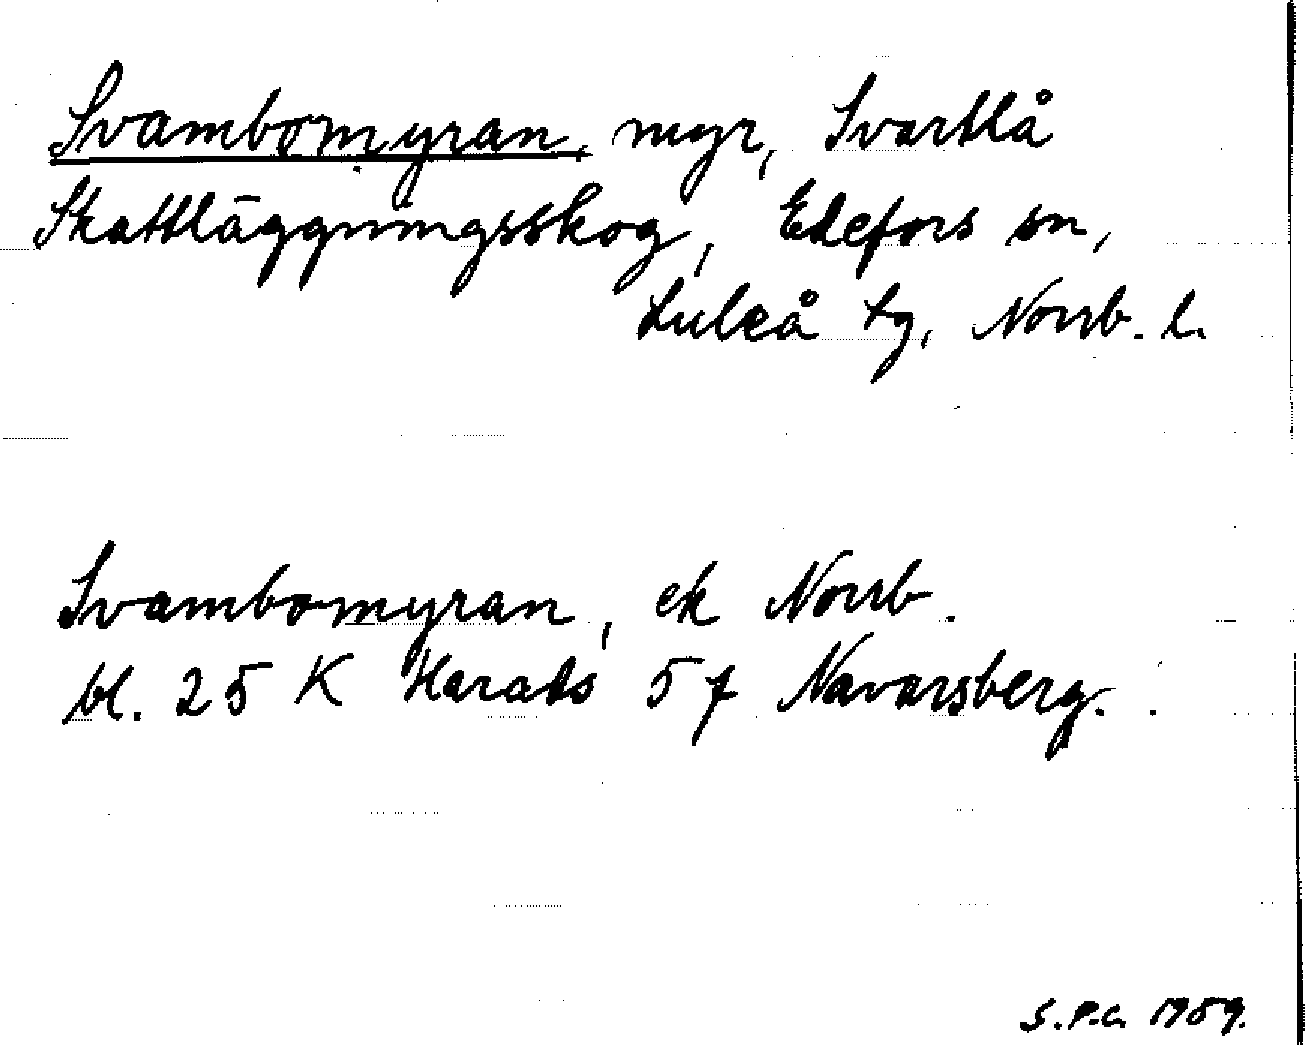 Svambomyran, myr, Svartlå
Skattläggningsskog, Edefors sn,
Luleå tg, Norrb. l.
Svambomyran, ek Norrb.
bl. 25 K Harads 5f Navarsberg.
S.P.C. 1959.